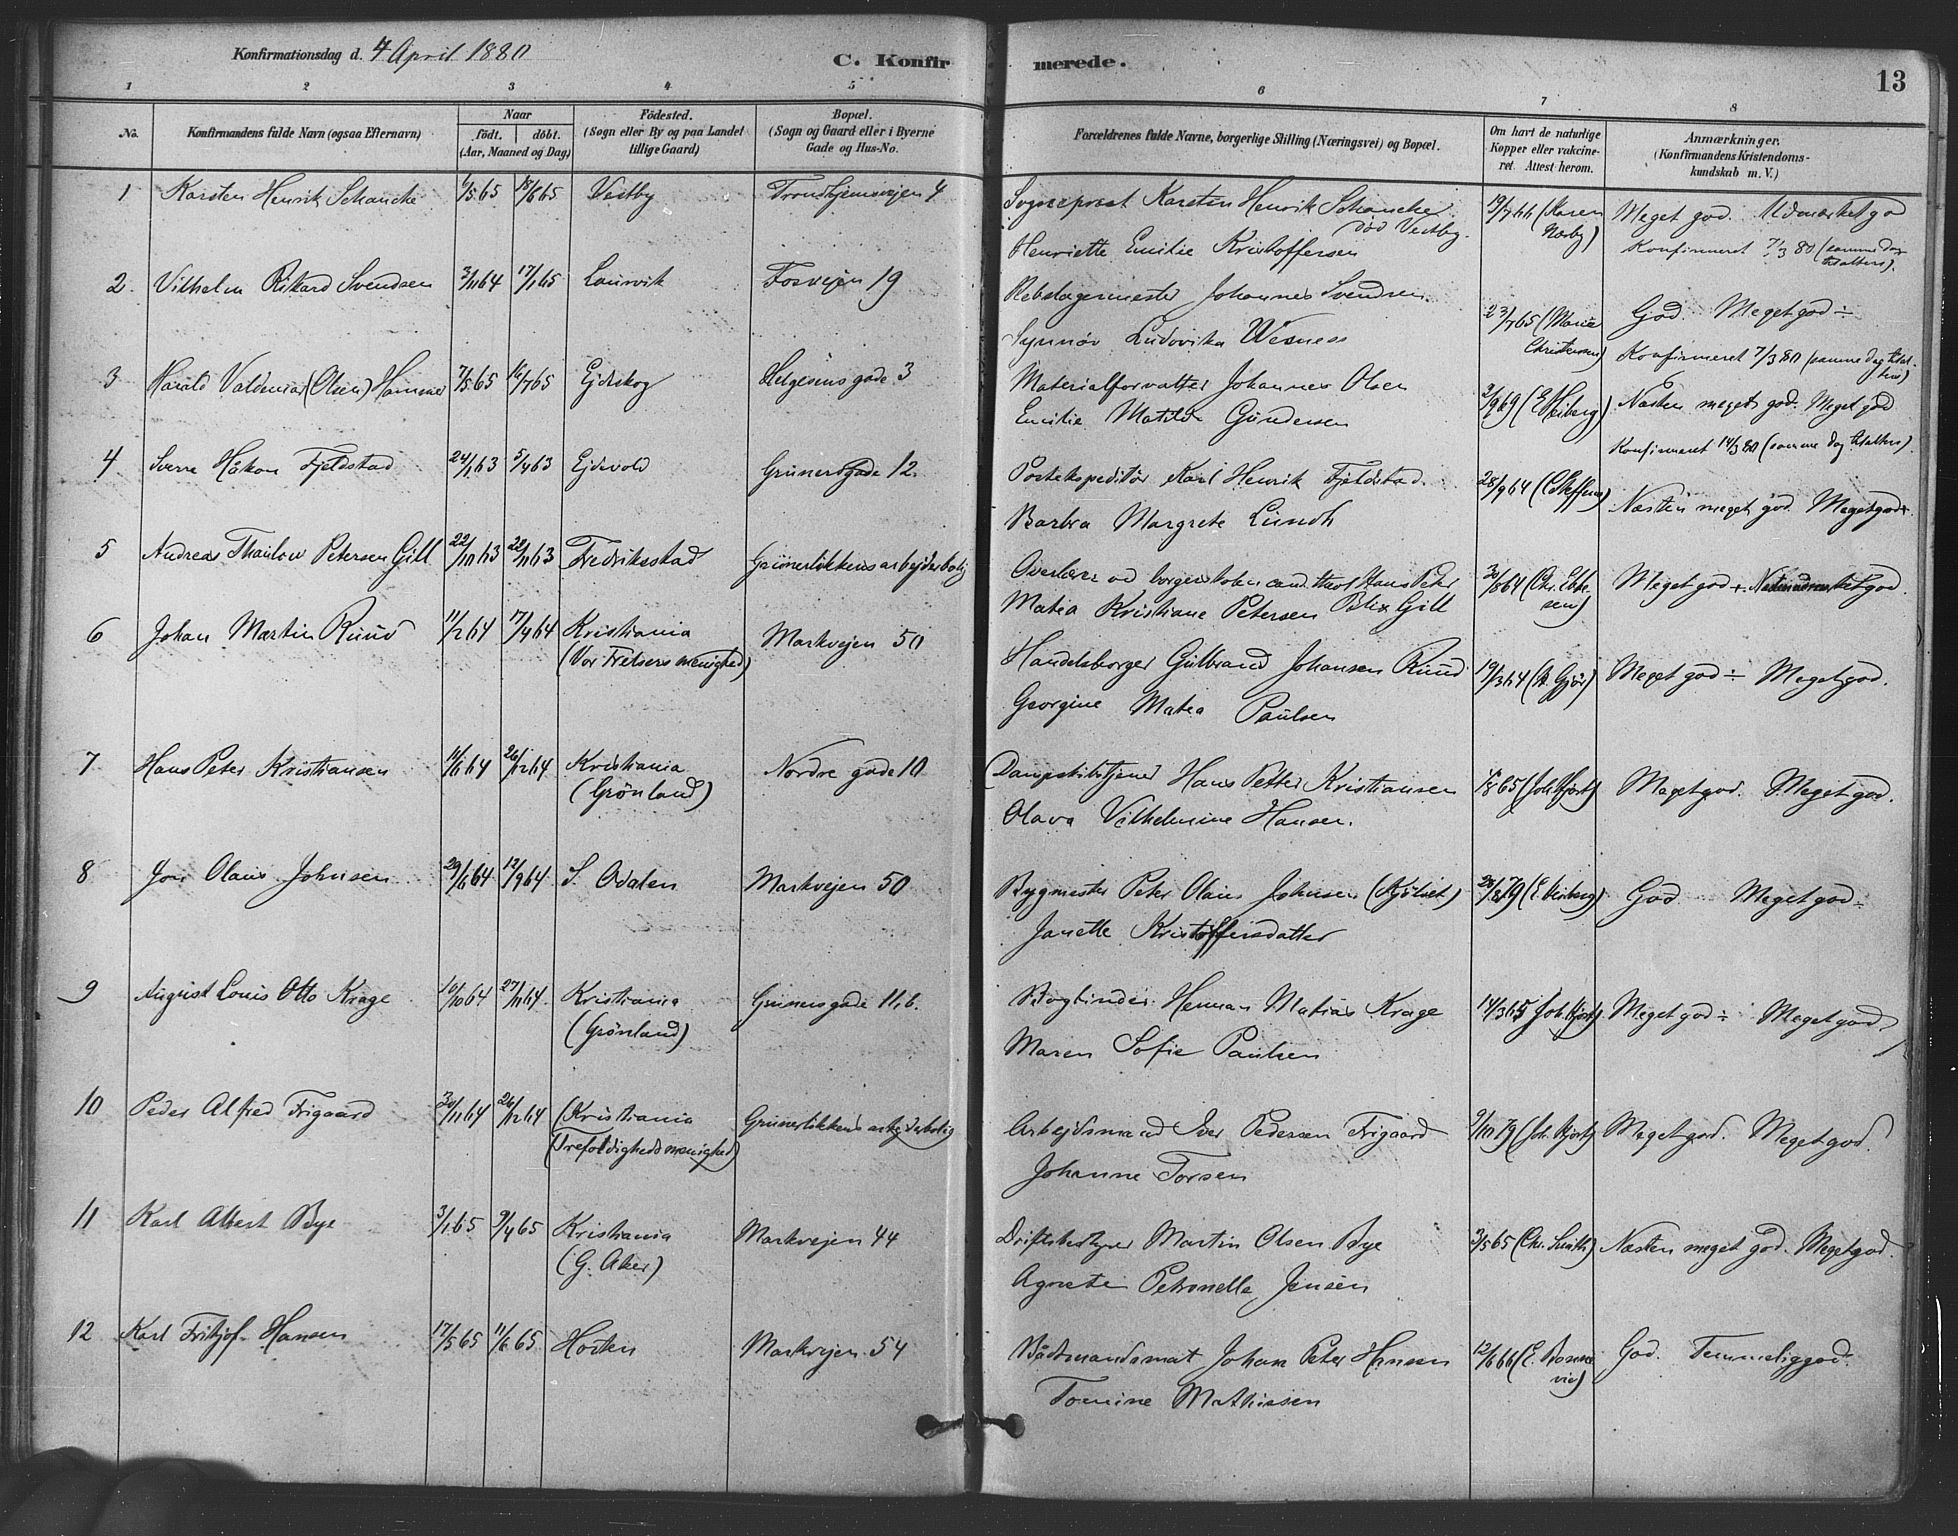 Konfirmationsdag d. 4 April 1880
C. Konfirmerede.
13
1 2 3 4 5 6 7 8
No.
Konfirmandens fulde Navn (ogsaa Efternavn)
Naar
födt. döbt.
(Aar, Maaned og Dag)
Födested.
(Sogn eller By og paa Landet
tillige Gaard)
Bopæl.
(Sogn og Gaard eller i Byerne
Gade og Hus-No.
Forældrenes fulde Navne, borgerlige Stilling (Næringsvei) og Bopæl.
Om havt de naturlige
Kopper eller vakcine-
ret. Attest herom.
Anmærkninger.
(Konfirmandens Kristendoms-
kundskab m. V.)
1 Karsten Henrik Schancke 1/5 65 18/6 65 Vestby Trondhjemsvejen 4
Sogneprest Karsten Henrik Schancke
død Vestby.
Henriette Emilie Kristoffersen
19/7 66 (Karen
Næsby)
Meget god. Udmærket god
Konfirmeret 7/3 80 (samme dag
tilalters).
2 Vilhelm Rikard Svendsen 3/11 64 17/1 65 Laurvik Fosvejen 19
Rebslagermester Johannes Svendsen.
Synnøv Ludovika Wesness
23/7 65 (Marie
Christensen)
God Meget god ÷
Konfirmeret 7/3 80 (samme dag tilal-
ters)
3 Harald Valdemar (Olsen) Hammer 7/5 65 16/7 65 Ejdskog Helgesens gade 3
Materialforvalter Johannes Olsen
Emilie Matilde Gundersen
2/9 69 (E. Heiberg)
Næsten meget god. Meget god
Konfirmeret 14/3 80 (samme dag tilalters).
4 Sverre Håkon Fjeldstad 24/1 63 5/4 63 Ejdsvold Grünersgade 12.
Postekspeditør Karl Henrik Fjeldstad.
Barbra Margrete Lundh
28/9 64 (C. Steffens)
Næsten meget god Meget god+
5 Andreas Thaulow Petersen Gill 22/10 63 22/11 63 Fredriksstad Grünerløkkens arbejderbolig
Overlærer ved borgerskolen cand. theol Hans Peter
Matea Kristiane Petersen Gill
30/8 64 (Chr. Ebbe-
sen)
Meget god +
6 Johan Martin Ruud 11/2 64 17/4 64 Kristiania Markvejen 50
(Vor Frelsers menighed)
Handelsborger Gulbrand Johansen Ruud
Georgine Matea Paulsen
19/3 64 (A. Gjør)
Meget god ÷ Meget god.
7 Hans Peter Kristiansen 11/6 64 26/12 64 Kristiania Nordre gade 10
(Grønland)
Hans Petter Kristiansen
Olava Vilhelmine Hansen.
1/8 65 (Joh. Hjort)
Meget god. Meget god.
8 Jon Olaus Johnsen 29/6 64 12/9 64 S. Odalen Markvejen 50
Bygmester Peter Olaus Johnsen (Kjølset)
Janette Kristoffersdatter
79 (E. Heiberg)
God Meget god ÷
9 August Louis Otto Krage 10/10 64 27/11 64 Kristiania Grünersgade 11, b.
(Grønland)
Bogbinder Herman Matias Krage
Maren Sofie Paulsen
14/3 65 (Joh. Hjort)
Meget god ÷ Meget god.
10 Peder Alfred Frigaard 30/11 64 26/12 64 (Kristiania Grünerløkkens arbejderbolig
(Trefoldigheds menighed)
Arbejdsmand Iver Pedersen Frigaard
Johanne Torsen
9/10 79 (Joh. Hjort)
Meget god. Meget god.
11 Karl Albert Bye 3/1 65 9/4 65 Kristiania Markvejen 44
(G. Aker)
Driftsbestyrer Martin Olsen Bye
Agnete Petronelle Jensen
3/5 65 (Chr. Smith)
Næsten meget god. Meget god.
12 Karl Fritjof Hansen 17/5 65 11/6 65 Horten Markvejen 54
Bådsmandsmat Johan Peter Hansen
Tomine Mathissen
12/6 66 (E. Bonne-
vie)
God. Temmelig god.